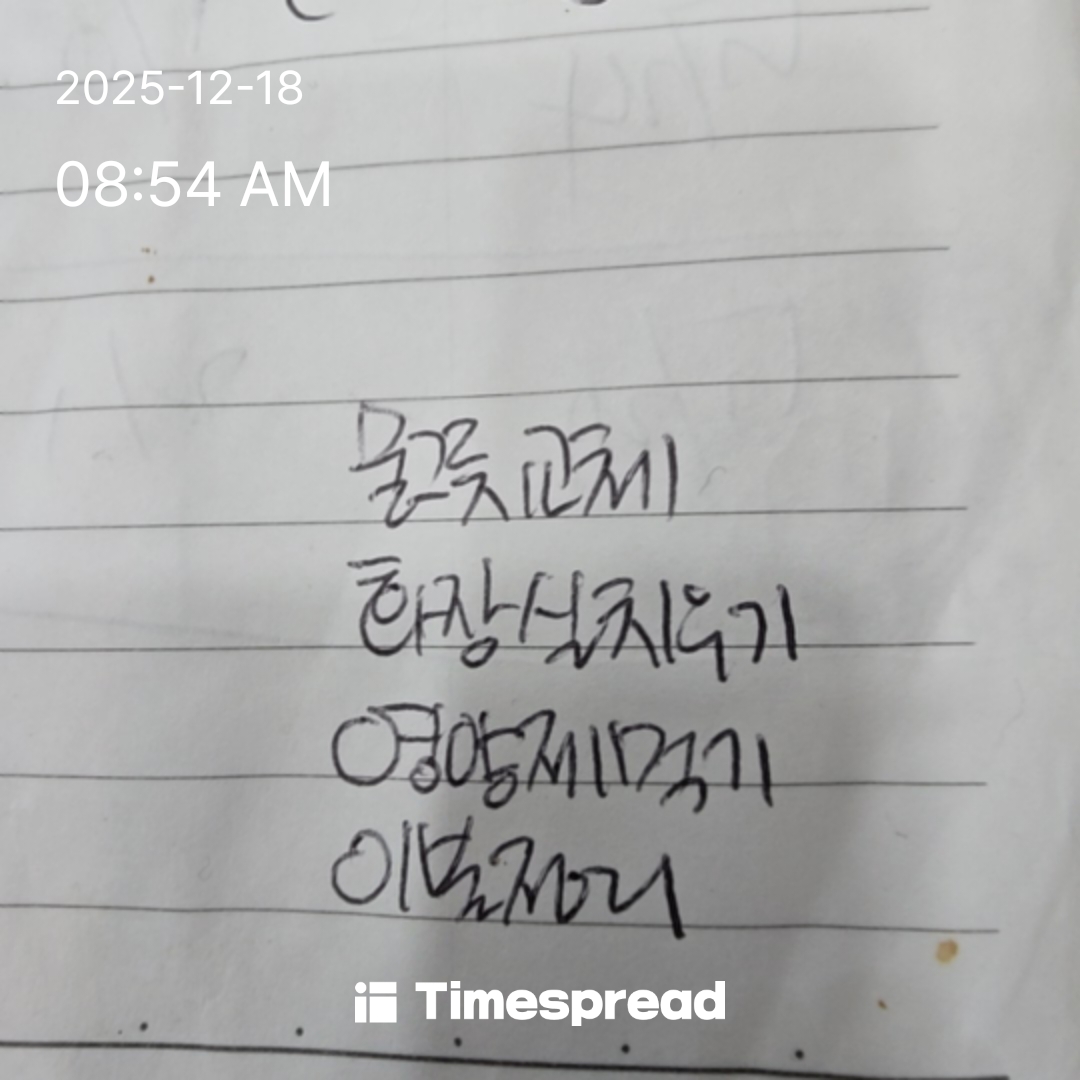 2025-12-18
08:54 AM
물그릇 교체
화장실치우기
영양제먹기
이불정리
Timespread